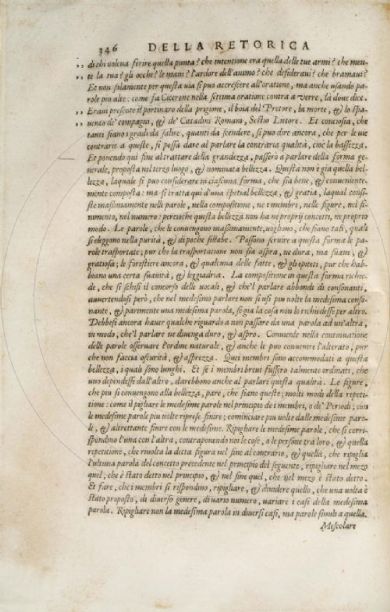 346 DELLA RETORICA
,, di chi voleva ferire quella punta? che intentione era quella delle tue armi? che men-
,, te la tua? gli occhi? le mani? l'ardore dell'animo? che desideravi? che bramavi?
Et non solamente per questa via si può accrescere all'oratione, ma anche usando pa-
role più alte: come fa Cicerone nella settima oratione contra a Verre, là dove dice.
,, Eravi presente il portinaro della prigione, il boia del Pretore, la morte, & lo spa-
vento de' compagni, & de' Cittadini Romani, Sestio Littore. Et conciosia, che
tanti siano i gradi da salire, quanti da scendere, si può dire ancora, che per le vie
contrarie a queste, si possa dare al parlare la contraria qualità, cioè la bassezza.
Et ponendo quì fine al trattare della grandezza, passerò a parlare della forma gene-
rale, proposta nel terzo luogo, & nominata bellezza. Questa non è già quella bel-
lezza, laquale si può considerare in ciascuna forma, che sia bene, & conveniente-
mente composta: ma si tratta quì d'una cotal bellezza, & gratia, laqual consi-
ste massimamente nelle parole, nella compositione, ne i membri, nelle figure, nel fi-
nimento, nel numero: percioche questa bellezza non ha ne proprij concetti, ne proprio
modo. Le parole, che le convengono massimamente, vogliono, che siano tali, quali
si eleggono nella purità, & di poche sillabe. Possono servire a questa forma le pa-
role trasportate; pur che la trasportatione non sia aspra, ne dura, ma soave, &
gratiosa; le forestiere ancora, & qualcuna delle fatte, & gli epiteti, pur che hab-
biano una certa suavità, & leggiadria. La compositione in questa forma richie-
de, che si schifi il concorso delle vocali, & che'l parlare abbondi di consonanti,
avvertendosi però, che nel medesimo parlare non si usi piu volte la medesima conso-
nante, & parimente una medesima parola, se già la cosa no lo richiedesse per altro.
Debbesi ancora haver qualche riguardo a non passare da una parola ad un'altra,
in modo, che'l parlare ne divenga duro, & aspro. Conviensi nella continuatione
delle parole osservare l'ordine naturale, & anche le può convenire l'alterato, pur
che non faccia oscurità, & asprezza. Quei membri sono accommodati a questa
bellezza, i quali sono lunghi. Et se i membri brevi fussero talmente ordinati, che
uno dependesse dall'altro, darebbono anche al parlare questa qualità. Le figure,
che piu si convengono alla bellezza, pare, che siano queste; molti modi della repeti-
tione: come il pigliare le medesime parole nel principio de i membri, o de' Periodi; con
le medesime parole piu volte riprese finire; cominciare piu volte dalle medesime paro-
le, & altrettante finire con le medesime. Ripigliare le medesime parole, che si corri-
spondino l'una con l'altra, contraponendo noi le cose, o le persone tra loro, & quella
repetitione, che rivolta la detta figura nel fine al contrario, & quella, che ripiglia
l'ultima parola del concetto precedente nel principio del seguente, ripigliare nel mezo
quel, che è stato detto nel principio, & nel fine quel, che nel mezo è stato detto.
Et fare, che i membri si rispondino, ripigliare, & chiudere quello, che una volta è
stato proposto, di diverso genere, di vario numero, variare i casi della medesima
parola. Ripigliare non la medesima parola in diversi casi, ma parole simili a quella.
Mescolare